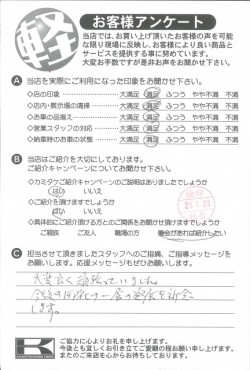 軽
お客様アンケート
当店では、お買い上げ頂いたお客様の声を可能
な限り現場に反映し、お客様により良い商品と
サービスを提供する事に努めています。
大変お手数ですが是非お声をお聞かせ下さい。
A 当店を実際にご利用になった印象をお聞かせ下さい。
◇店の印象 大満足 満足 ふつう やや不満 不満
◇店内・展示場の清掃 大満足 満足 ふつう やや不満 不満
◇お車の品揃え 大満足 満足 ふつう やや不満 不満
◇営業スタッフの対応 大満足 満足 ふつう やや不満 不満
◇納車時のお車の状態 大満足 満足 ふつう やや不満 不満
B 当店はご紹介を大切にしております。
ご紹介キャンペーンについてお聞かせ下さい。
◇カミタケご紹介キャンペーンのご説明はありましたでしょうか
はい いいえ
◇ご紹介を頂けますでしょうか
はい いいえ
◇具体的にご紹介頂ける方とのご関係をお聞かせ頂けますでしょうか
ご親族 ご友人 職場の方 機会があれば紹介したい
C 担当させて頂きましたスタッフへのご指摘、ご指導メッセージを
お願いします。応援メッセージもぜひお願いします。
大変良く頑張っていました
今後の
します。
K
ご協力に心よりお礼を申し上げます。
今後とも宜しくお引き立てご愛顧の程お願い申し上げます。
またのご来店を心からお待ちしております。